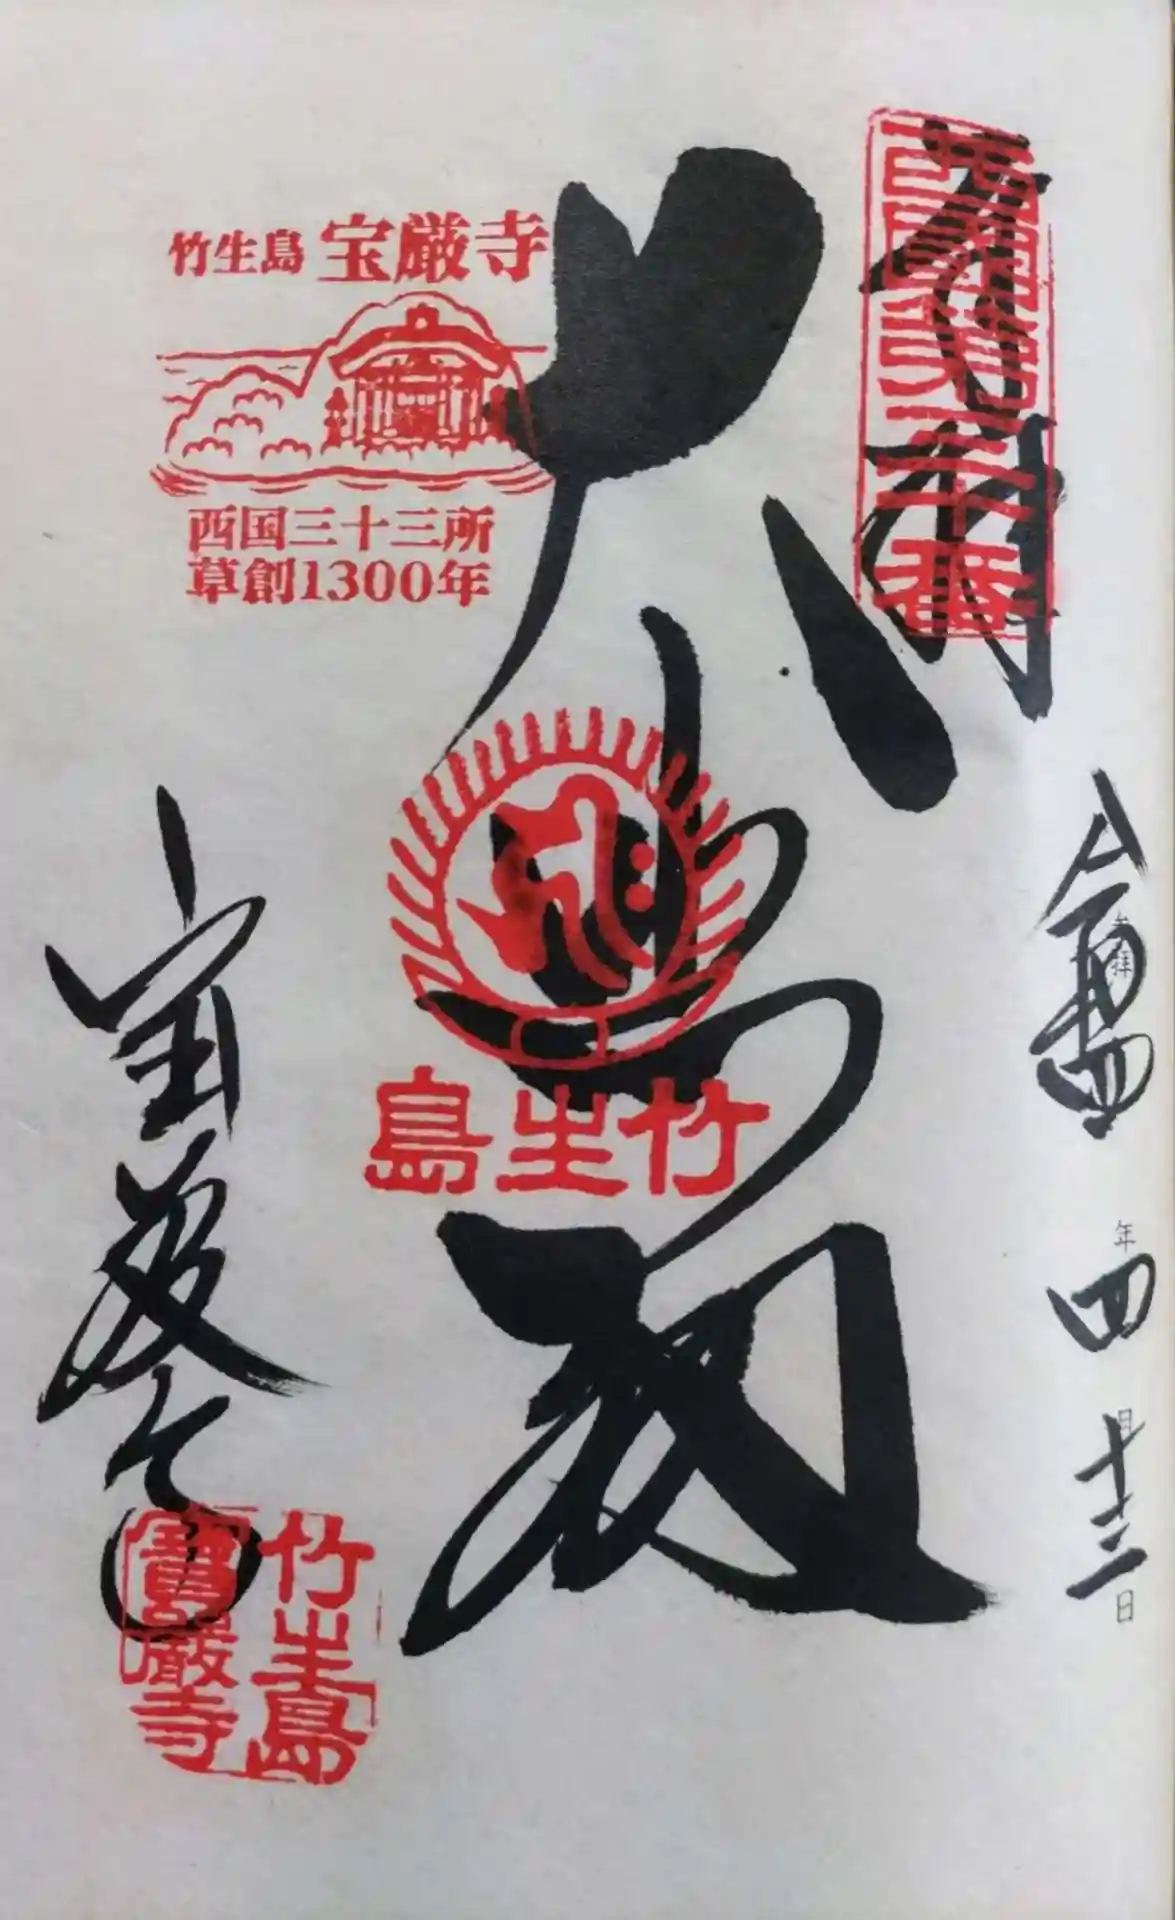 奉拝
西國第三十番
令和四年四月十三日
大悲殿
竹生島 宝厳寺
西国三十三所
草創1300年
竹生島
宝厳寺
竹生島
寶嚴寺